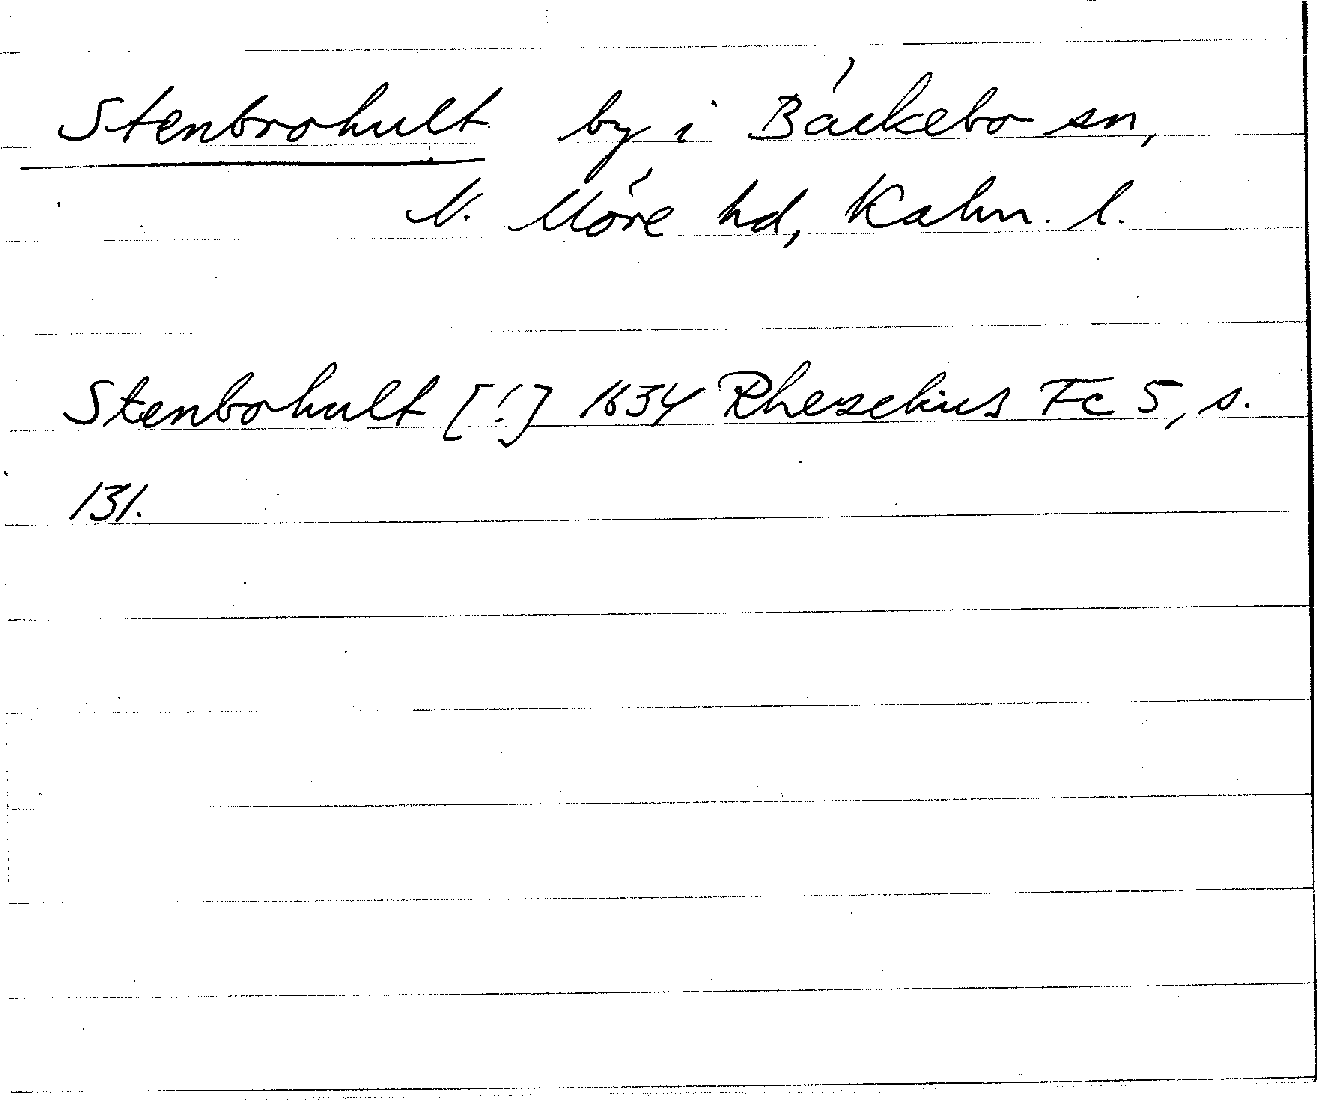 Stenbrohult by i Bäckebo sn,
N. Möre hd, Kalm. l.
Stenbohult [!] 1634 Rhezelius Fc 5, s.
131.